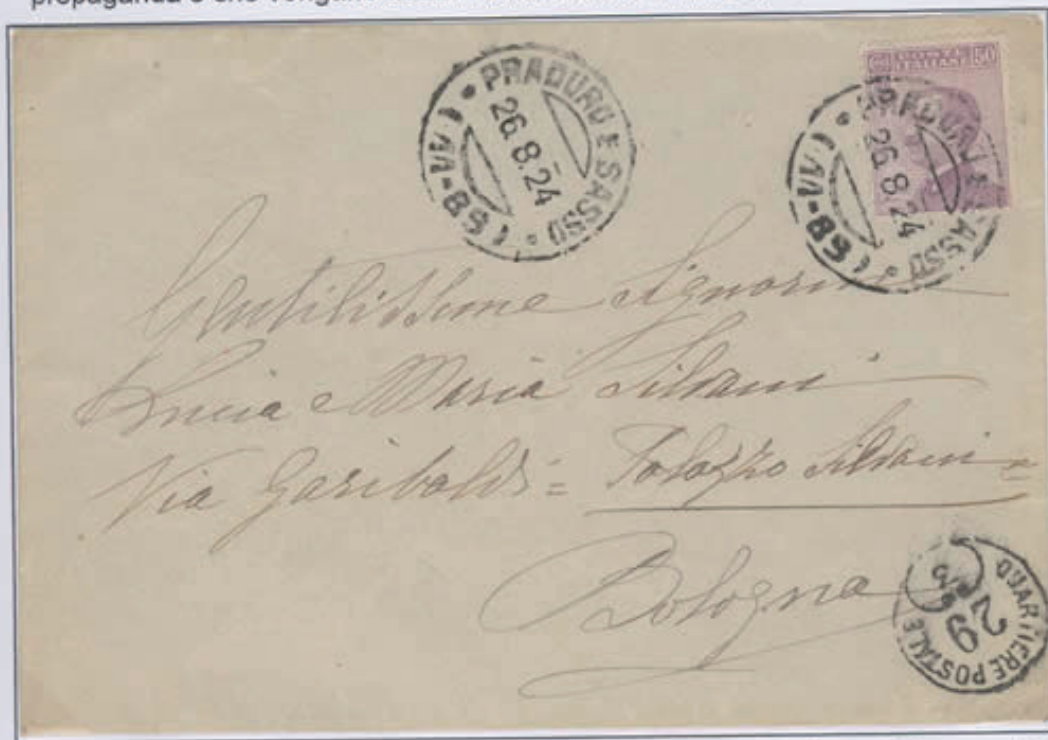 propaganda e che vengan
PRADURO E SASSO
26.8.24
(44-89)
POSTE ITALIANE 50
PRADURO E SASSO
26.8.24
(44-89)
Gentilissime Signorine
Lucia e Maria Silvani
Via Garibaldi = Palazzo Silvani =
Bologna
QUARTIERE POSTALE
29